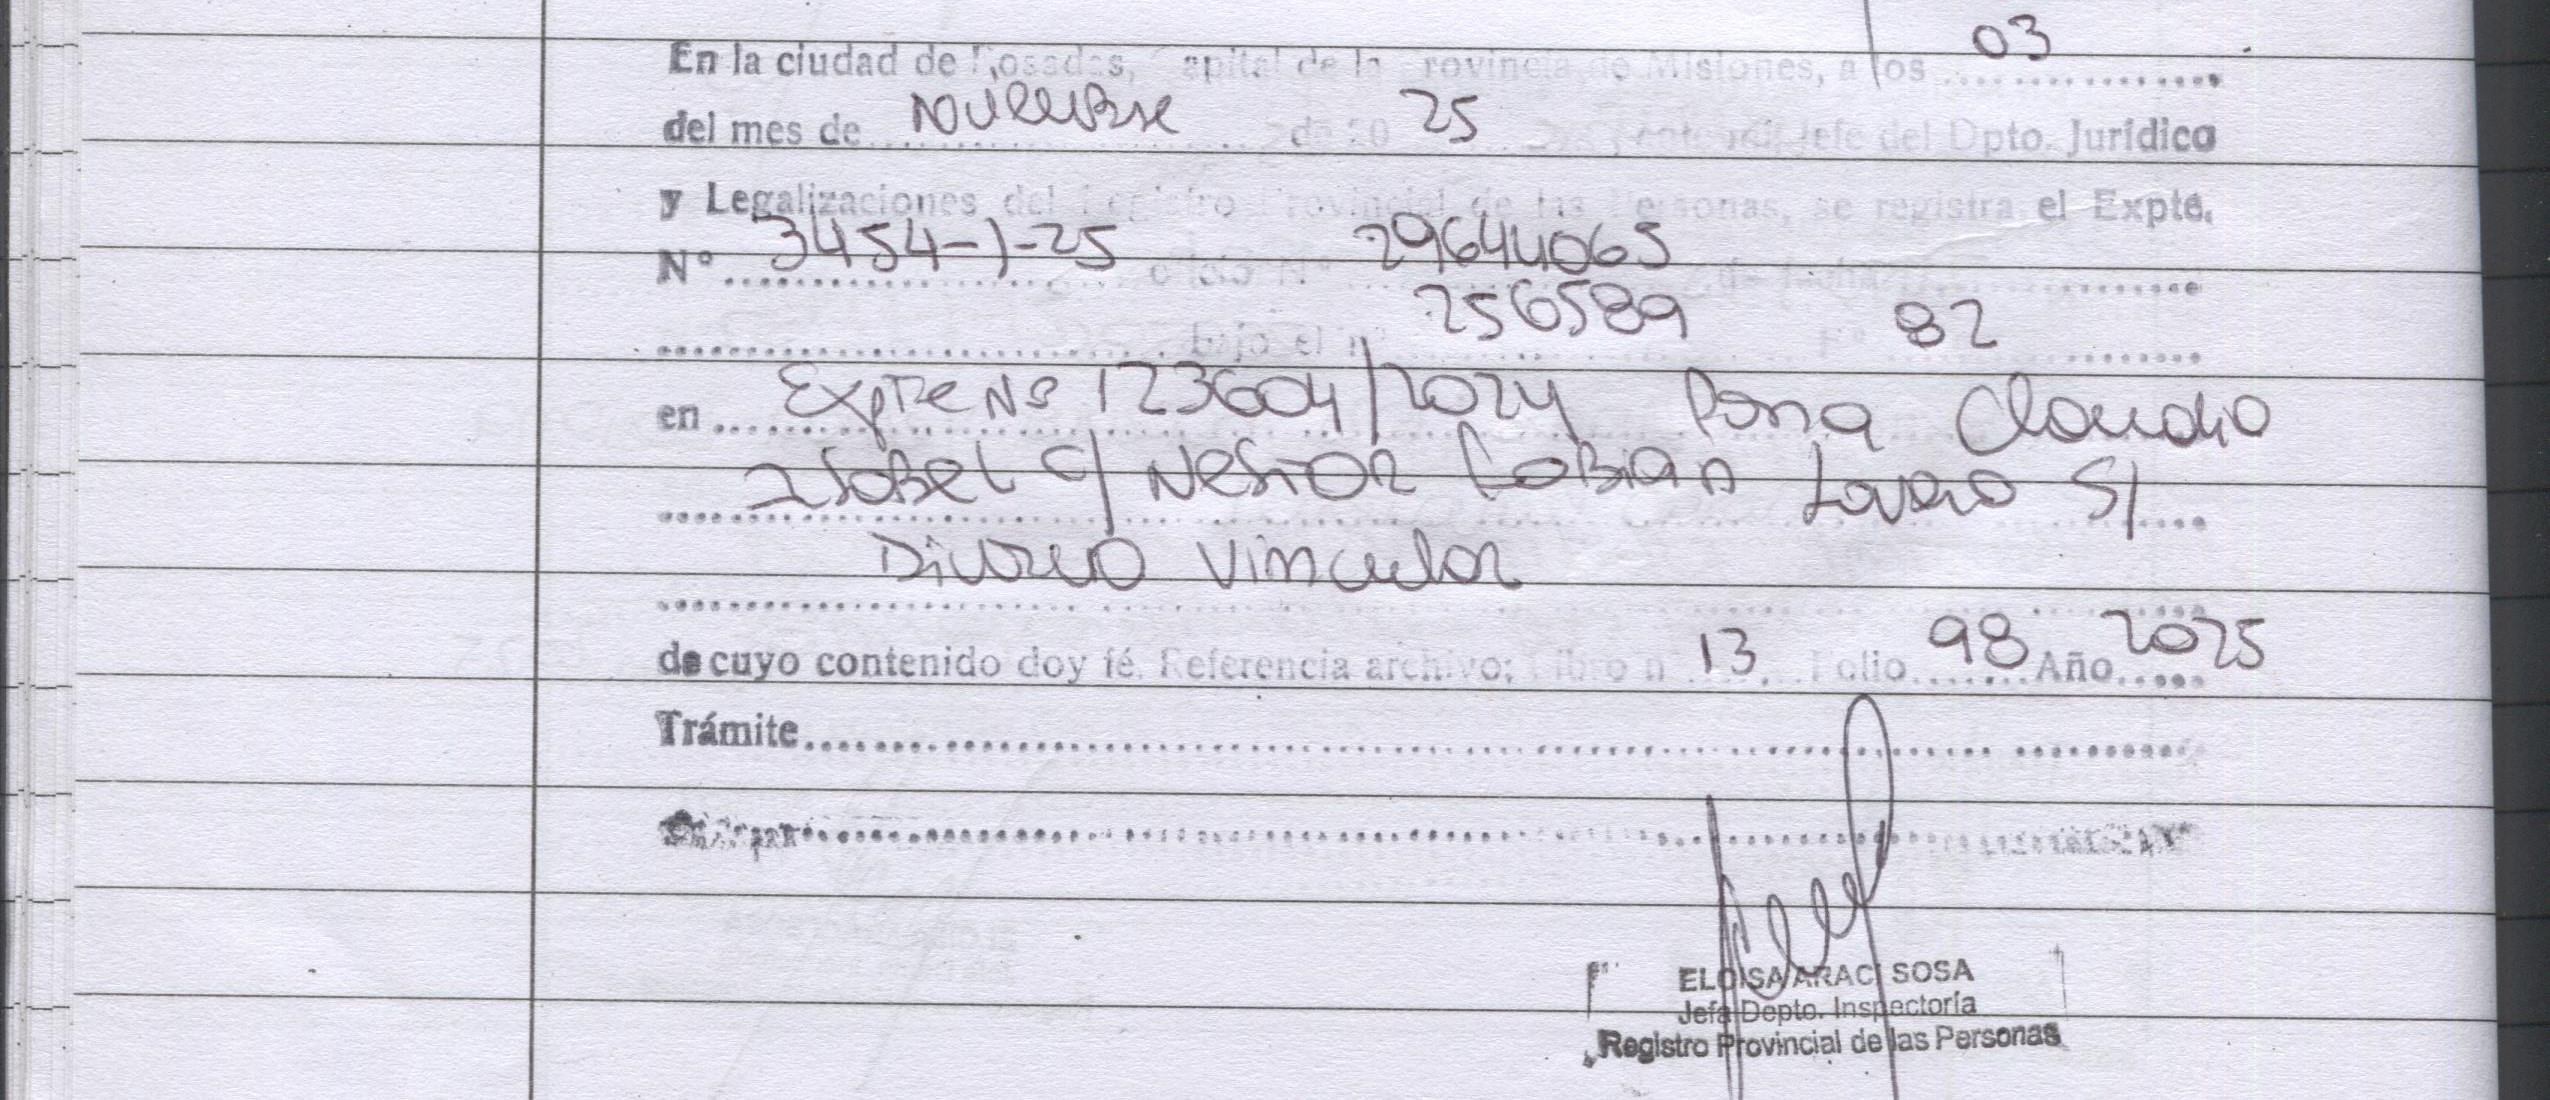 En la ciudad de Posadas, Capital de la Provincia de Misiones, a los 03
del mes de Noviembre de 20 25 Jefe del Dpto. Jurídico
y Legalizaciones del Registro Provincial de las Personas, se registra el Expte.
N° 3454-J-25 oficio N° 29644065 de fecha
bajo el n° 256589 F° 82
en Expte Nº 123604/2024 Claudia
Isabel c/ Nestor Fabian S/
Divorcio Vincular
de cuyo contenido doy fé. Referencia archivo; Libro n° 13 Folio 98 Año 2025
Trámite
ELOISA ARACI SOSA
Jefa Depto. Inspectoría
Registro Provincial de las Personas